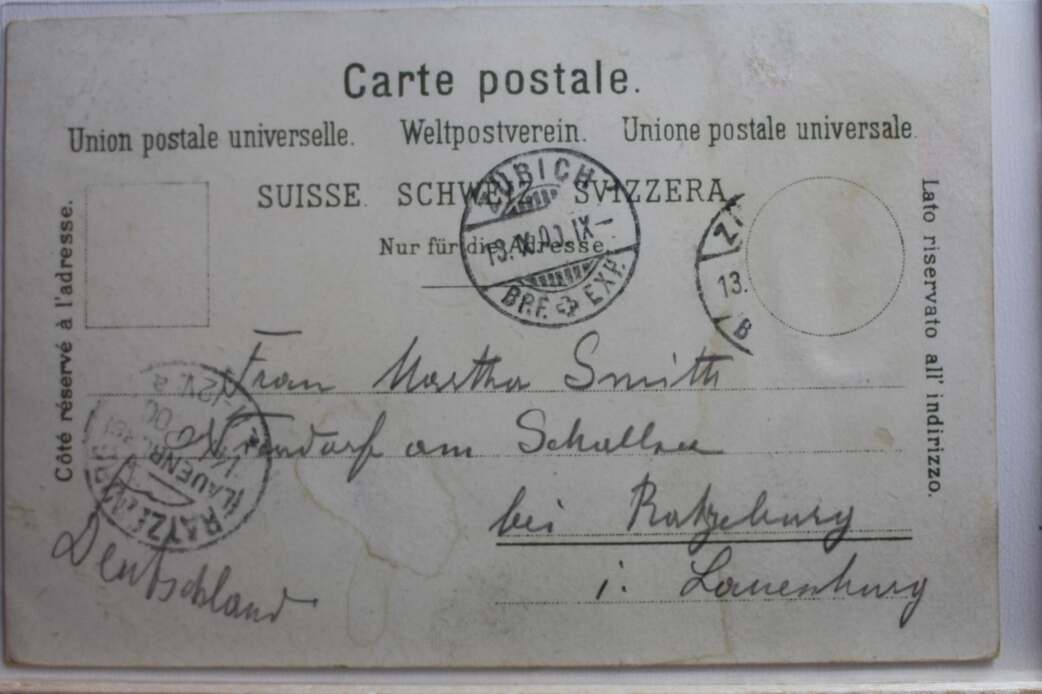 Carte postale.
Union postale universelle. Weltpostverein. Unione postale universale.
SUISSE. SCHWEIZ. SVIZZERA.
Nur für die Adresse.
Côté réservé à l'adresse.
Lato riservato all' indirizzo.
ZÜRICH
13.IX.00.IX-
BRF. EXP.
13.
Frau Martha Smith
am Schallsee
bei Ratzeburg
i. Lauenburg
Deutschland